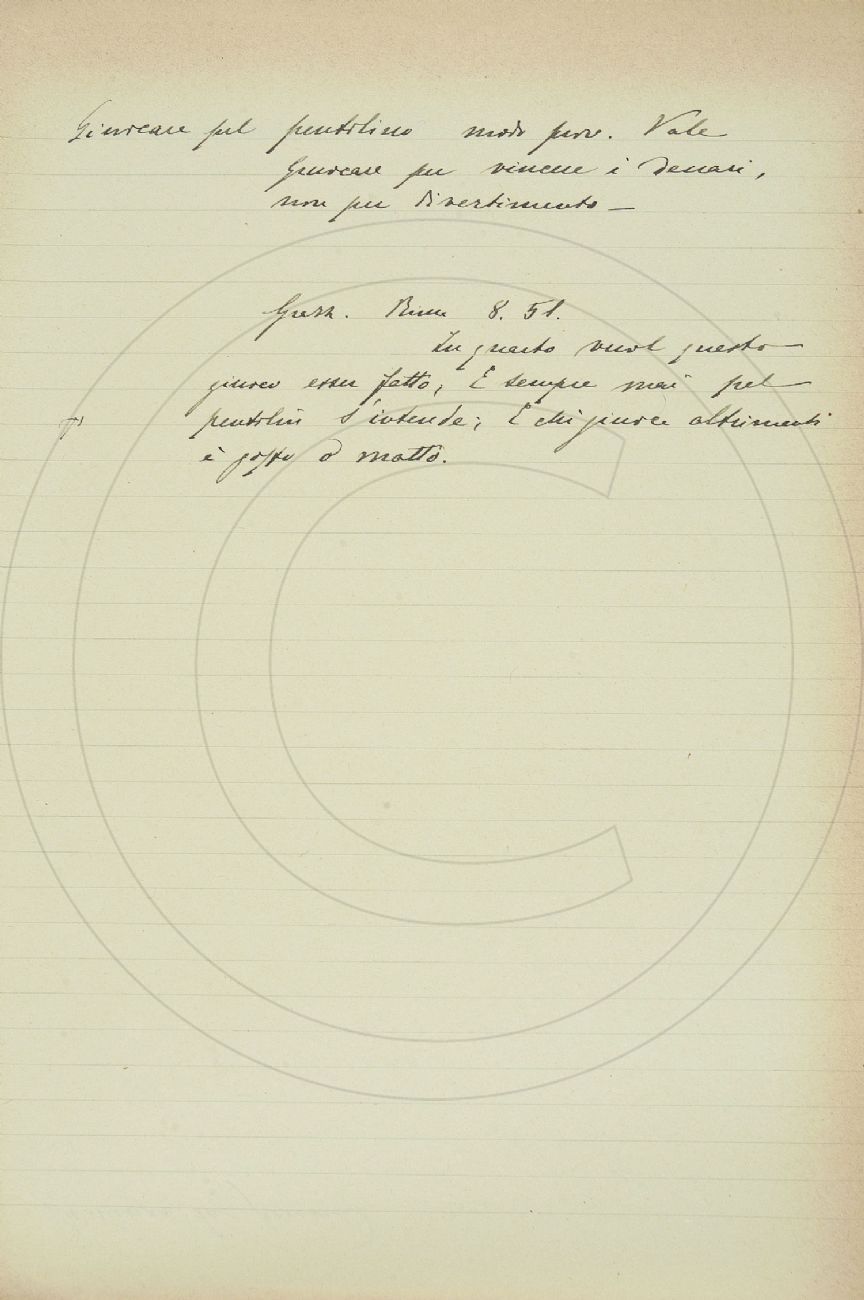 Giuocare pel pentolino modo prov. Vale
giuocare per vincere i denari,
non per divertimento —
Grazz. Rime 8. 51.
In quarto vuol questo
giuoco esser fatto, E sempre mai pel
pentolin s'intende; E chi giuoca altrimenti
è goffo o matto.